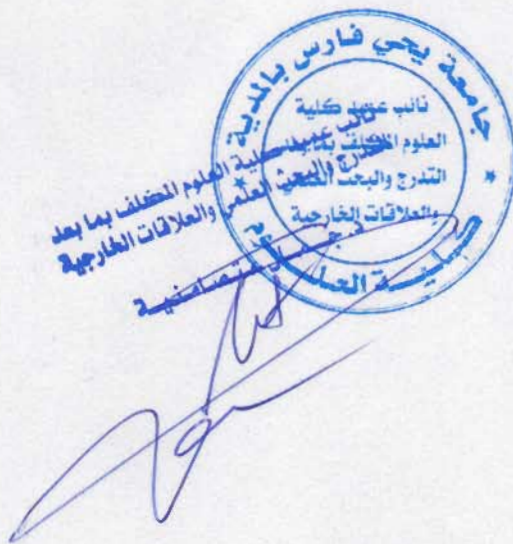 جامعة يحي فارس بالمدية
نائب عميد كلية
العلوم المكلف بما بعد
التدرج والبحث العلمي
والعلاقات الخارجية
كلية العلوم
نائب عميد كلية العلوم المكلف بما بعد
التدرج والبحث العلمي والعلاقات الخارجية